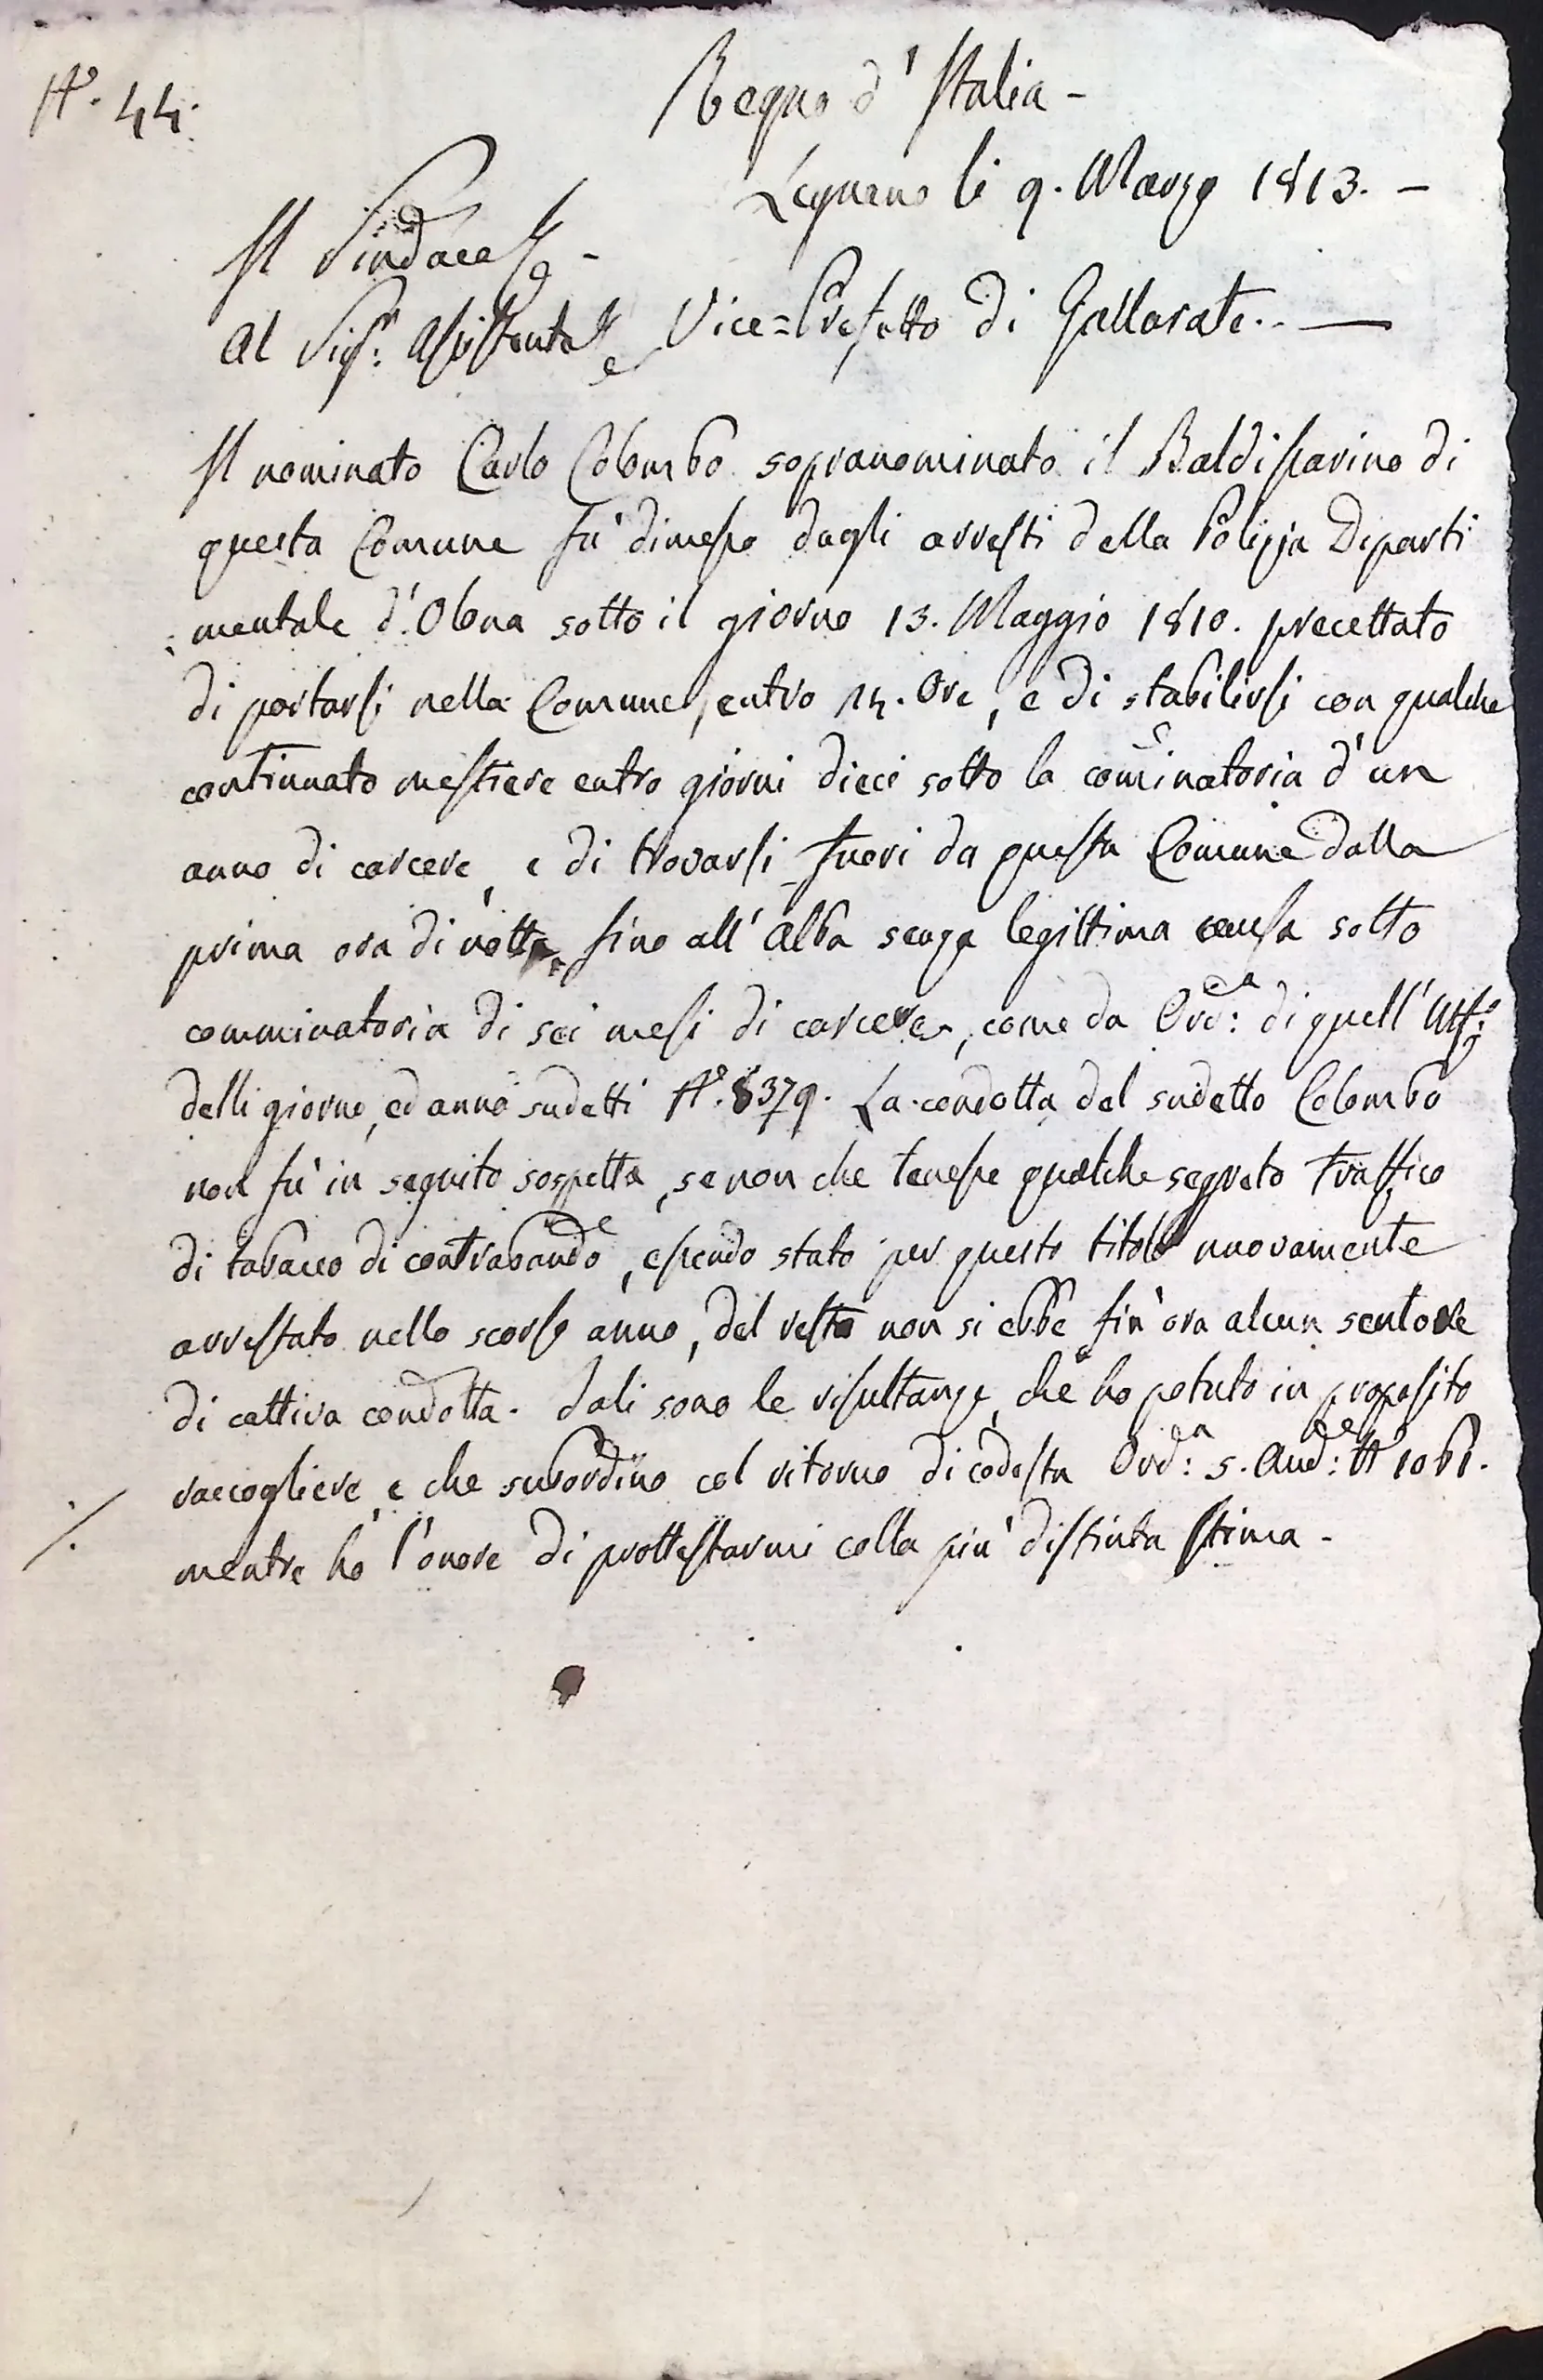 N.° 44.
Regno d'Italia -
Legnano li 9. Marzo 1813. -
Il Sindaco -
Al Sig.r Assistente Vice=Prefetto di Gallarate. -
Il nominato Carlo Colombo sopranominato il Baldissarino di
questa Comune fù dimesso dagli arresti della Polizia Diparti
mentale d'Olona sotto il giorno 13. Maggio 1810. precettato
di portarsi nella Comune, entro 24. Ore, e di stabilirsi con qualche
continuato mestiere entro giorni dieci sotto la cominatoria d'un
anno di carcere, e di trovarsi fuori da questa Comune dalla
prima ora di notte fino all'alba senza legittima causa sotto
comminatoria di sei mesi di carcere, come da Ord:za di quell'Uff:o
delli giorno, ed anno sudetti N.° 8379. La condotta del sudetto Colombo
non fù in seguito sospetta, se non che tenesse qualche segreto traffico
di tabacco di contrabando, essendo stato per questo titolo nuovamente
arrestato nello scorso anno, del resto non si ebbe fin'ora alcun sentore
di cattiva condotta. Tali sono le risultanze, che ho potuto in proposito
raccogliere e che subordino col ritorno di codesta Ord:za 5. And:te N° 1061.
mentre ho l'onore di prottestarmi colla più distinta stima -